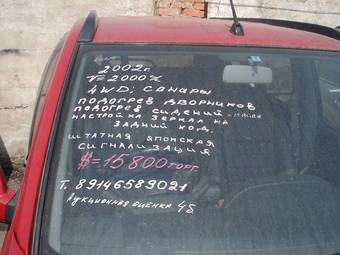 2002г.
V=2000%
4WD; САНАРЫ
ПОДОГРЕВ ДВОРНИКОВ
ПОДОГРЕВ СИДЕНИЙ
НАСТРОЙКА ЗЕРКАЛ НА
ЗАДНИЙ ХОД.
ШТАТНАЯ ЯПОНСКАЯ
СИГНАЛИЗАЦИЯ
$=15800 ТОРГ
Т. 89146589021
Аукционная оценка 4,5